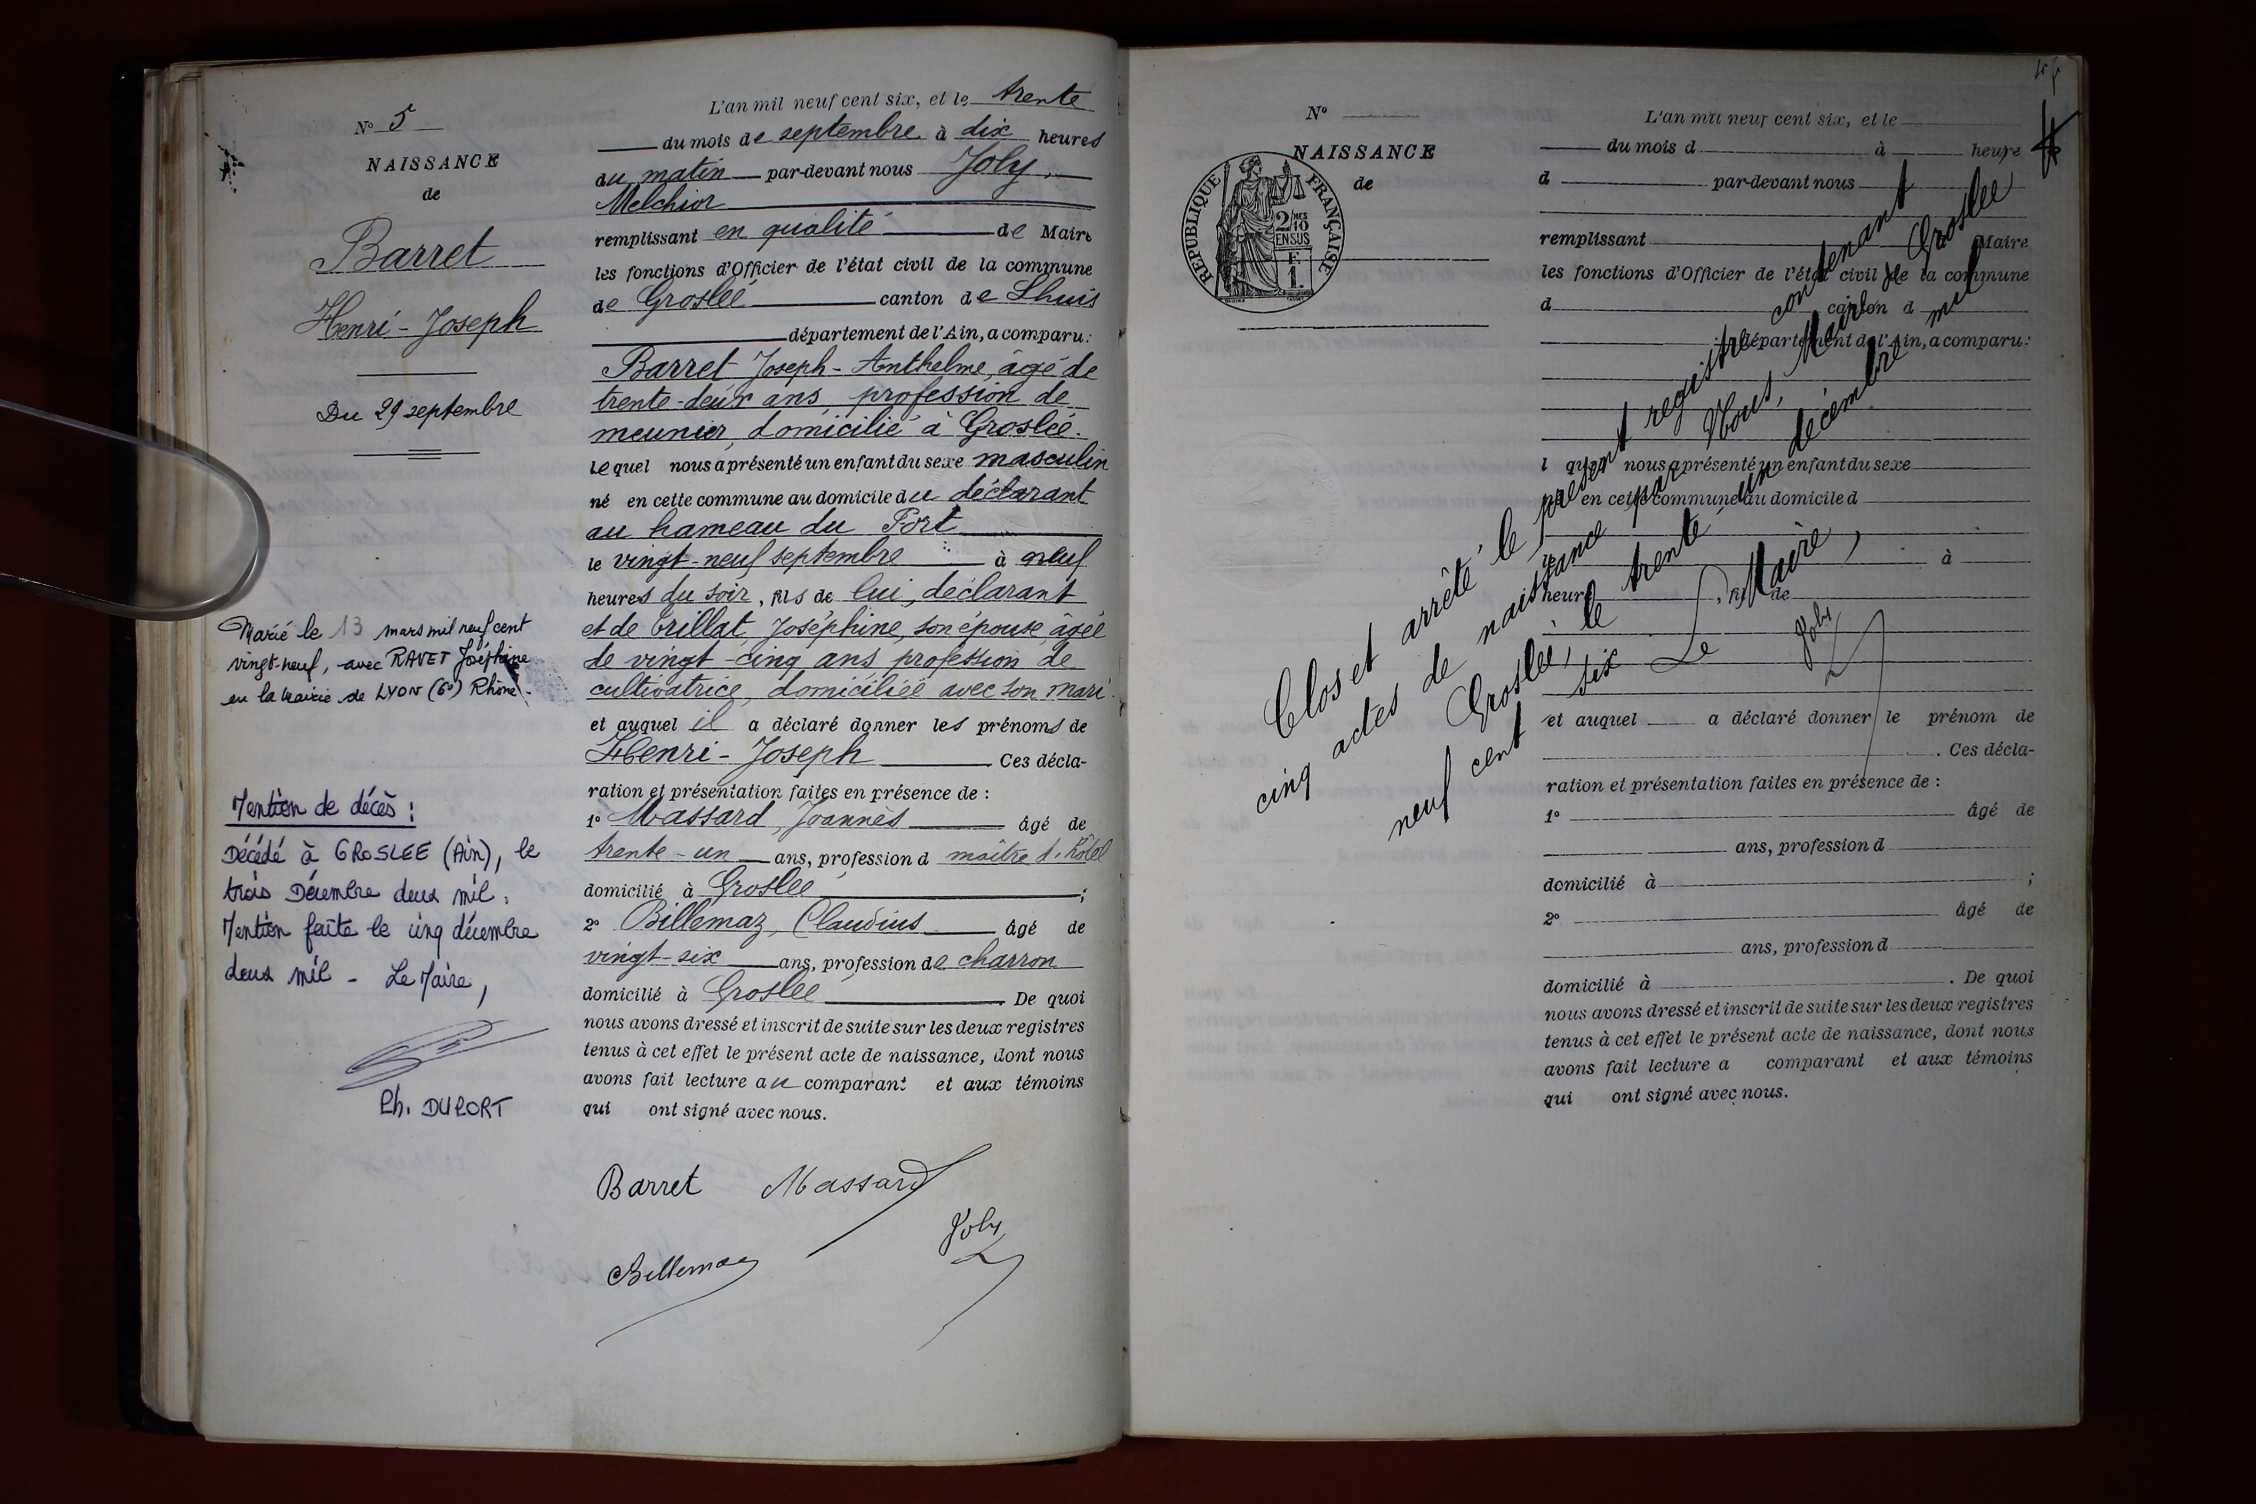 N° 5
NAISSANCE
de
Barret
Henri - Joseph
Du 29 septembre
Marié le 13 mars mil neuf cent
vingt-neuf, avec RAVET Joséphine
en la mairie de LYON (6e) Rhône.
Mention de décès :
Décédé à GROSLEE (Ain), le
trois Décembre deux mil.
Mention faite le cinq décembre
deux mil - Le Maire,
Ph. DUPORT
L'an mil neuf cent six, et le trente
du mois de septembre à dix heures
du matin par-devant nous Joly,
Melchior
remplissant en qualité de Maire
les fonctions d'Officier de l'état civil de la commune
de Groslée canton de Lhuis
département de l'Ain, a comparu :
Barret Joseph - Anthelme, âgé de
trente-deux ans profession de
meunier, domicilié à Groslée.
Lequel nous a présenté un enfant du sexe masculin
né en cette commune au domicile du déclarant
au hameau du Port
le vingt-neuf septembre à neuf
heures du soir, fils de lui, déclarant
et de Trillat, Joséphine, son épouse, âgée
de vingt-cinq ans, profession de
cultivatrice, domiciliée avec son mari
et auquel il a déclaré donner les prénoms de
Henri - Joseph Ces décla-
ration et présentation faites en présence de :
1° Massard, Joannès âgé de
trente-un ans, profession d maître d'hôtel
domicilié à Groslée ;
2° Billemaz, Claudius âgé de
vingt-six ans, profession de charron
domicilié à Groslée . De quoi
nous avons dressé et inscrit de suite sur les deux registres
tenus à cet effet le présent acte de naissance, dont nous
avons fait lecture au comparant et aux témoins
qui ont signé avec nous.
Barret Massard
Joly
Billemaz
N°
NAISSANCE
de
RÉPUBLIQUE FRANÇAISE
2/10MES
EN SUS
F.
1.
L'an mil neuf cent six, et le
du mois d à heure
d par-devant nous
remplissant Maire
les fonctions d'Officier de l'état civil de la commune
d canton d
département de l'Ain, a comparu :
l quel nous a présenté un enfant du sexe
né en cette commune au domicile d
le à
heure , fils de
et auquel a déclaré donner le prénom de
. Ces décla-
ration et présentation faites en présence de :
1° âgé de
ans, profession d
domicilié à ;
2° âgé de
ans, profession d
domicilié à . De quoi
nous avons dressé et inscrit de suite sur les deux registres
tenus à cet effet le présent acte de naissance, dont nous
avons fait lecture a comparant et aux témoins
qui ont signé avec nous.
Clos et arrêté le présent registre contenant
cinq actes de naissance par Nous, Maire de Groslée
Groslée, le trente un décembre mil
neuf cent six Le Maire,
Joly